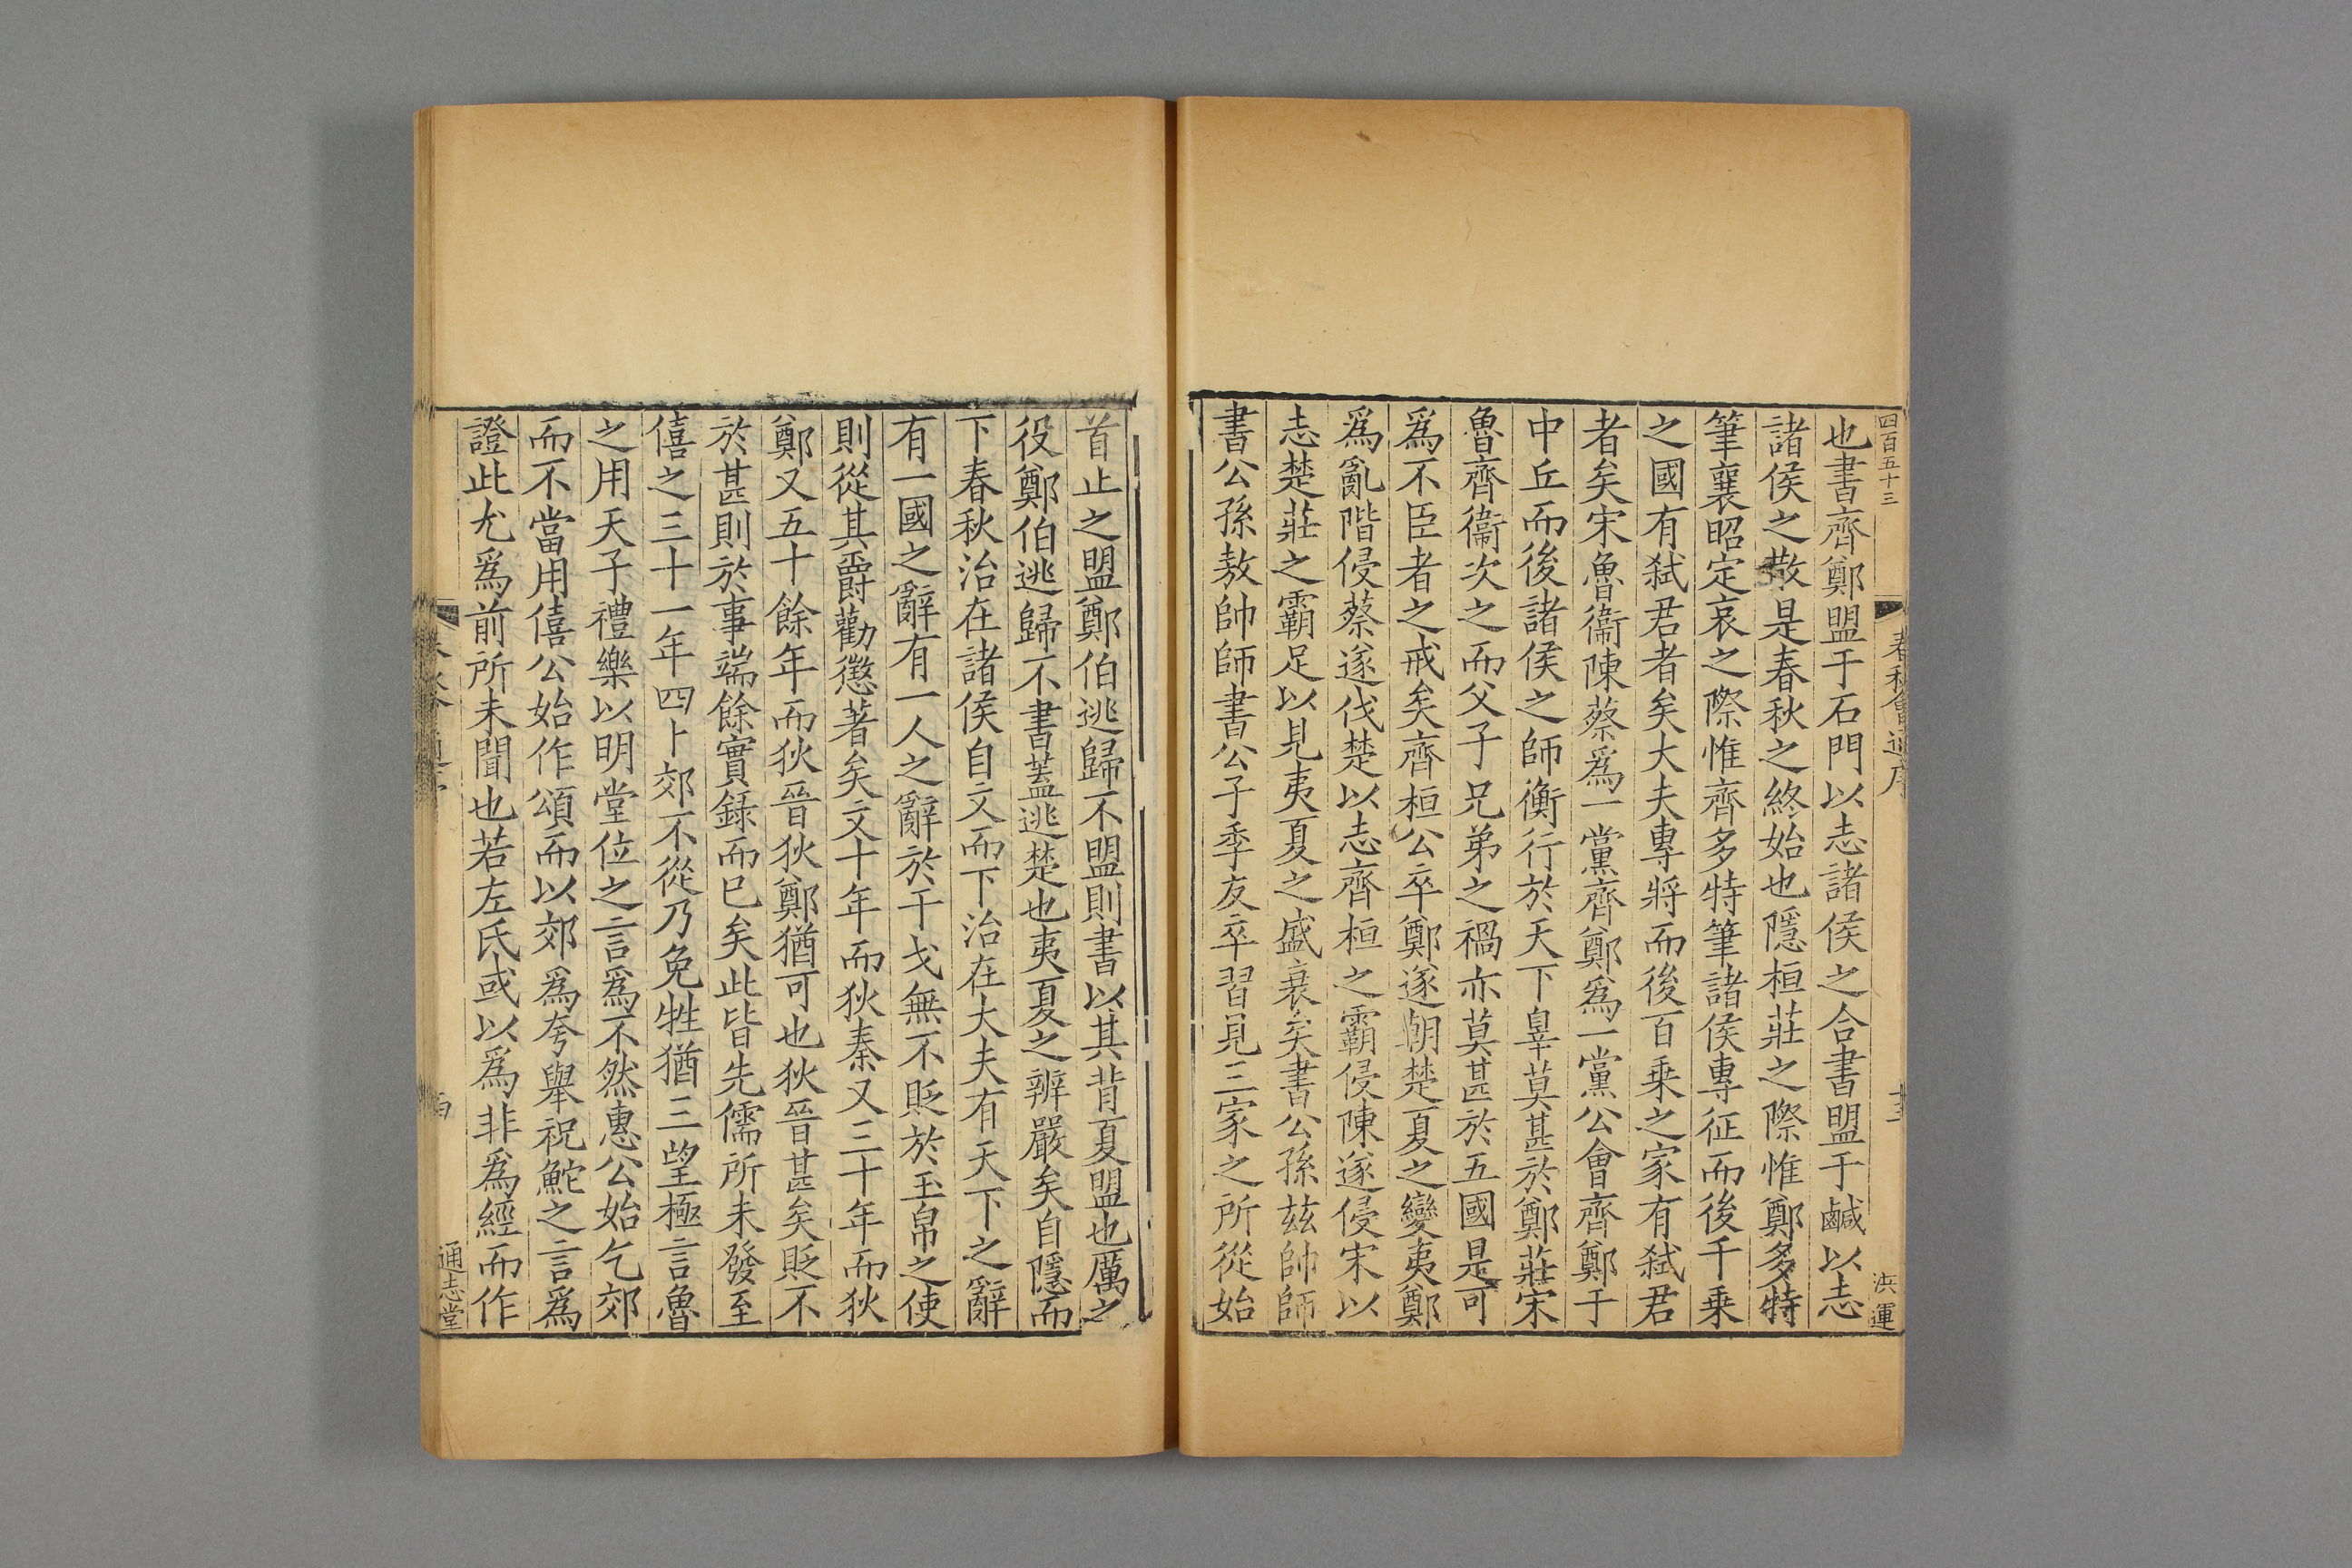 四百五十三
春秋會通序
十三
洪運
也書齊鄭盟于石門以志諸侯之合書盟于鹹以志
諸侯之散是春秋之終始也隱桓莊之際惟鄭多特
筆襄昭定哀之際惟齊多特筆諸侯專征而後千乗
之國有弑君者矣大夫專將而後百乗之家有弑君
者矣宋魯衞陳蔡爲一黨齊鄭爲一黨公會齊鄭于
中丘而後諸侯之師衡行於天下辠莫甚於鄭莊宋
魯齊衞次之而父子兄弟之禍亦莫甚於五國是可
爲不臣者之戒矣齊桓公卒鄭遂朝楚夏之變夷鄭
爲亂階侵蔡遂伐楚以志齊桓之霸侵陳遂侵宋以
志楚莊之霸足以見夷夏之盛衰矣書公孫茲帥師
書公孫敖帥師書公子季友卒習見三家之所從始
首止之盟鄭伯逃歸不盟則書以其背夏盟也厲之
役鄭伯逃歸不書蓋逃楚也夷夏之辨嚴矣自隱而
下春秋治在諸侯自文而下治在大夫有天下之辭
有一國之辭有一人之辭於干戈無不貶於玉帛之使
則從其爵勸懲著矣文十年而狄秦又三十年而狄
鄭又五十餘年而狄晉狄鄭猶可也狄晉甚矣貶不
於甚則於事端餘實録而已矣此皆先儒所未發至
僖之三十一年四卜郊不從乃免牲猶三望極言魯
之用天子禮樂以明堂位之言爲不然惠公始乞郊
而不當用僖公始作頌而以郊爲夸舉祝鮀之言爲
證此尤爲前所未聞也若左氏或以爲非爲經而作
通志堂